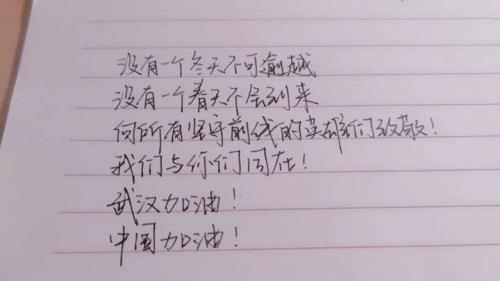 没有一个冬天不可逾越
没有一个春天不会到来
向所有坚守前线的英雄们致敬！
我们与你们同在！
武汉加油！
中国加油！